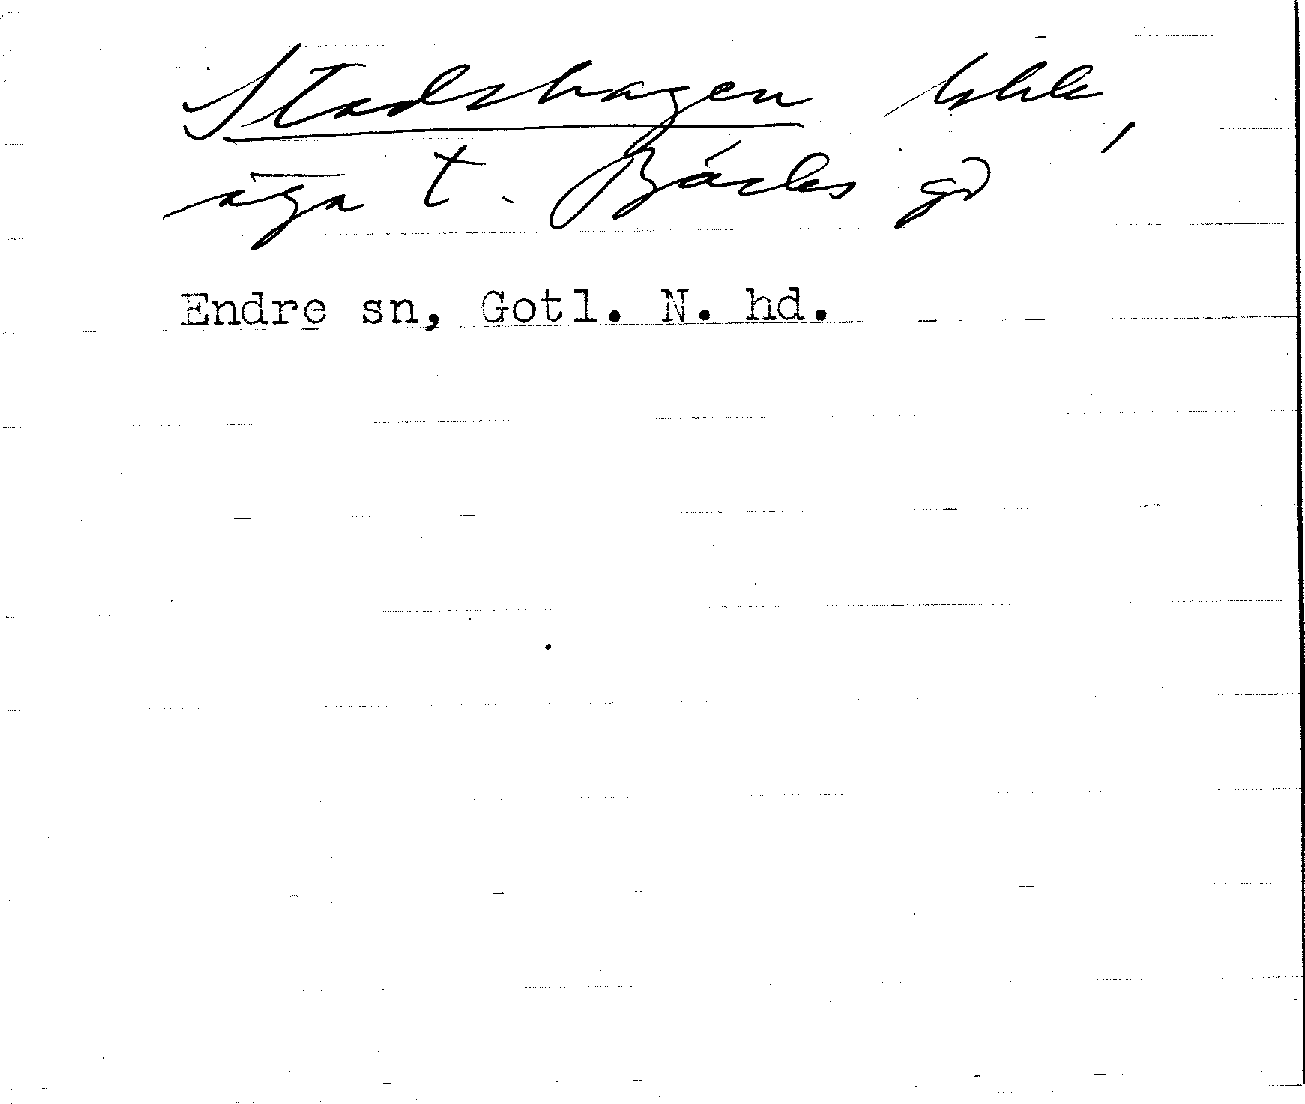 Stadshagen
äga t. Bäcks gd
Endre sn, Gotl. N. hd.